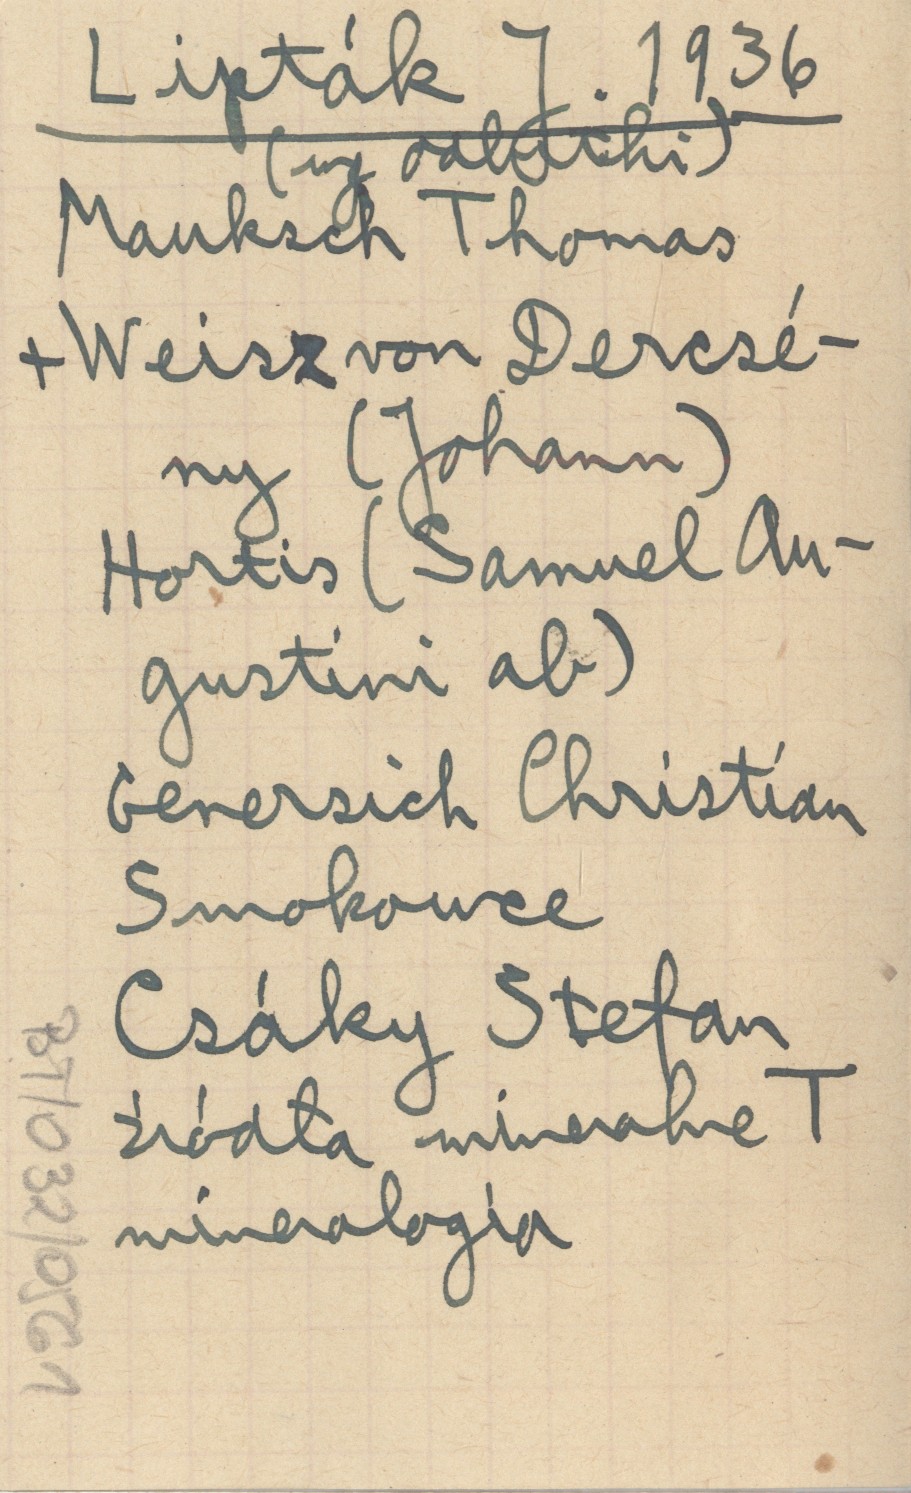 Lipták J. 1936
(wg odbitki)
Mauksch Thomas
+ Weisz von Dercsé-
ny (Johann)
Hortis (Samuel Au-
gustini ab)
Genersich Christian
Smokowce
Csáky Stefan
źródła mineralne T
mineralogia